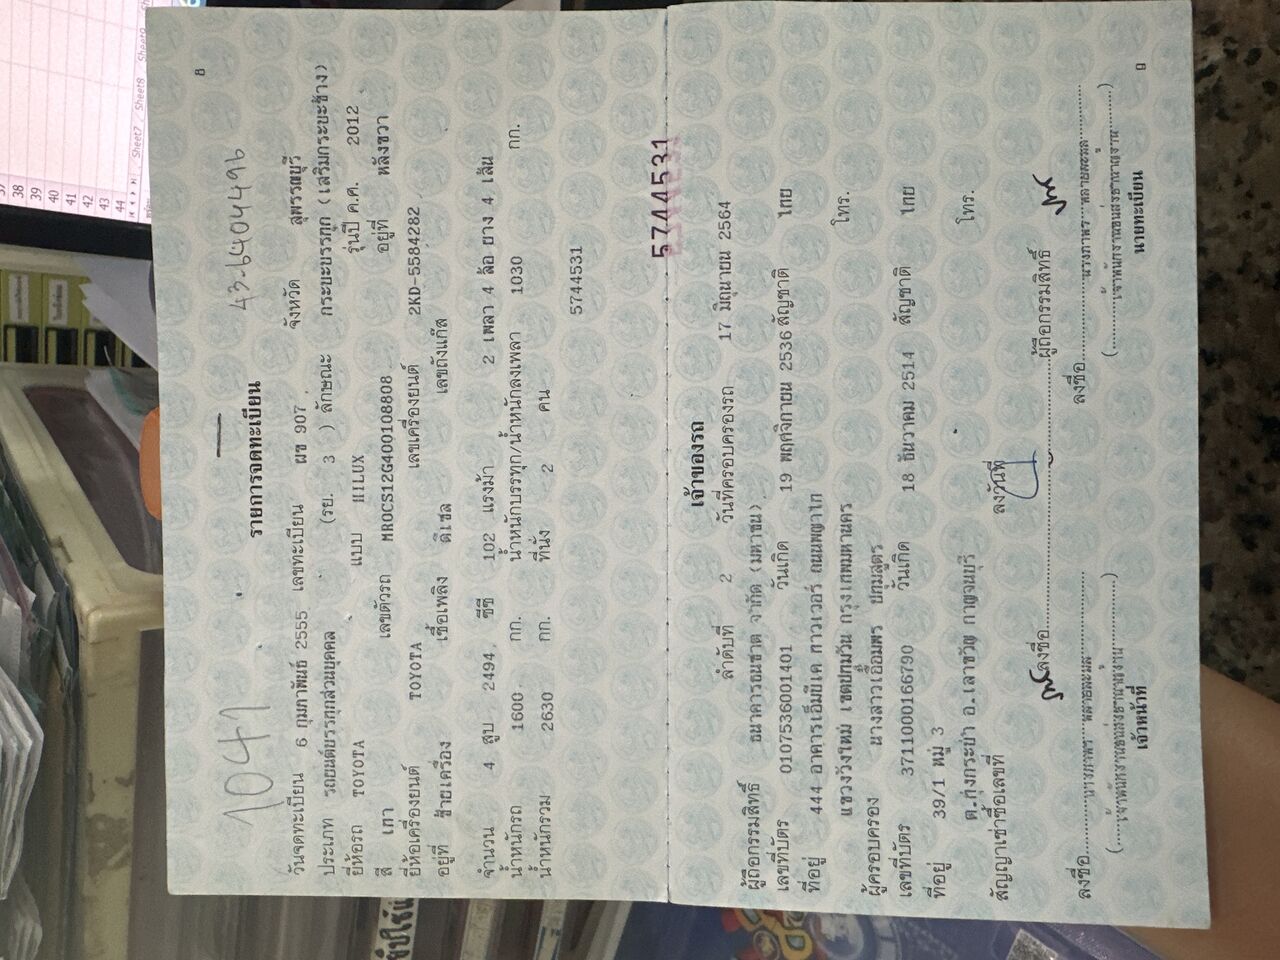 8
1041
43-6404496
รายการจดทะเบียน
วันจดทะเบียน 6 กุมภาพันธ์ 2555 เลขทะเบียน ผข 907 จังหวัด สุพรรณบุรี
ประเภท รถยนต์บรรทุกส่วนบุคคล (รย. 3 ) ลักษณะ กระบะบรรทุก (เสริมกระบะข้าง)
ยี่ห้อรถ TOYOTA แบบ HILUX รุ่นปี ค.ศ. 2012
สี เทา เลขตัวรถ MROCS12G400108808 อยู่ที่ หลังขวา
ยี่ห้อเครื่องยนต์ TOYOTA เลขเครื่องยนต์ 2KD-5584282
อยู่ที่ ซ้ายเครื่อง เชื้อเพลิง ดีเซล เลขถังแก๊ส
จำนวน 4 สูบ 2494 ซีซี 102 แรงม้า 2 เพลา 4 ล้อ ยาง 4 เส้น
น้ำหนักรถ 1600 กก. น้ำหนักบรรทุก/น้ำหนักลงเพลา 1030 กก.
น้ำหนักรวม 2630 กก. ที่นั่ง 2 คน
5744531
5744531
เจ้าของรถ
ลำดับที่ 2 วันที่ครอบครองรถ 17 มิถุนายน 2564
ผู้ถือกรรมสิทธิ์ ธนาคารธนชาต จำกัด (มหาชน)
เลขที่บัตร 0107536001401 วันเกิด 19 พฤศจิกายน 2536 สัญชาติ ไทย
ที่อยู่ 444 อาคารเอ็มบีเค ทาวเวอร์ ถนนพญาไท
แขวงวังใหม่ เขตปทุมวัน กรุงเทพมหานคร โทร.
ผู้ครอบครอง นางสาวเอื้อมพร ปทุมสูตร
เลขที่บัตร 3711000166790 วันเกิด 18 ธันวาคม 2514 สัญชาติ ไทย
ที่อยู่ 39/1 หมู่ 3
ต.ทุ่งกระบ่ำ อ.เลาขวัญ กาญจนบุรี โทร.
สัญญาเช่าซื้อเลขที่ ลงวันที่
ลงชื่อ ผู้ถือกรรมสิทธิ์
ลงชื่อ ลงชื่อ
เจ้าหน้าที่ นายทะเบียน
38
39
40
41
42
43
44
Sheet7 Sheet8